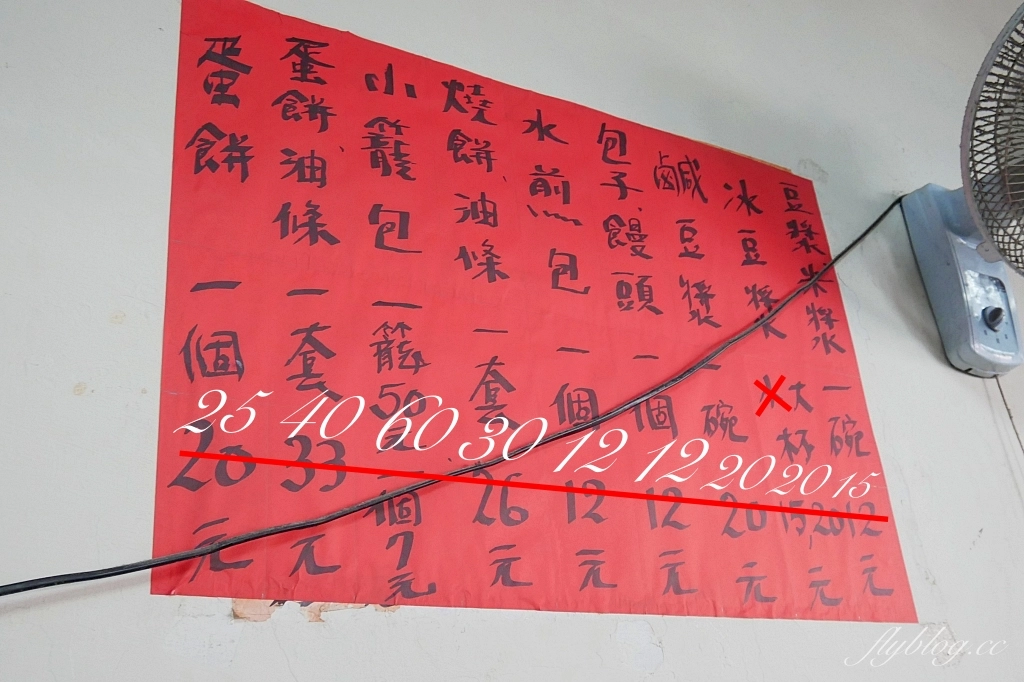 豆漿米漿一碗12元
冰豆漿小大杯15,20元
鹹豆漿一碗20元
包子、饅頭一個12元
水煎包一個12元
燒餅、油條一套26元
小籠包一籠50元一個7元
蛋餅、油條一套33元
蛋餅一個20元
25 40 60 30 12 12 20 20 15
flyblog.cc